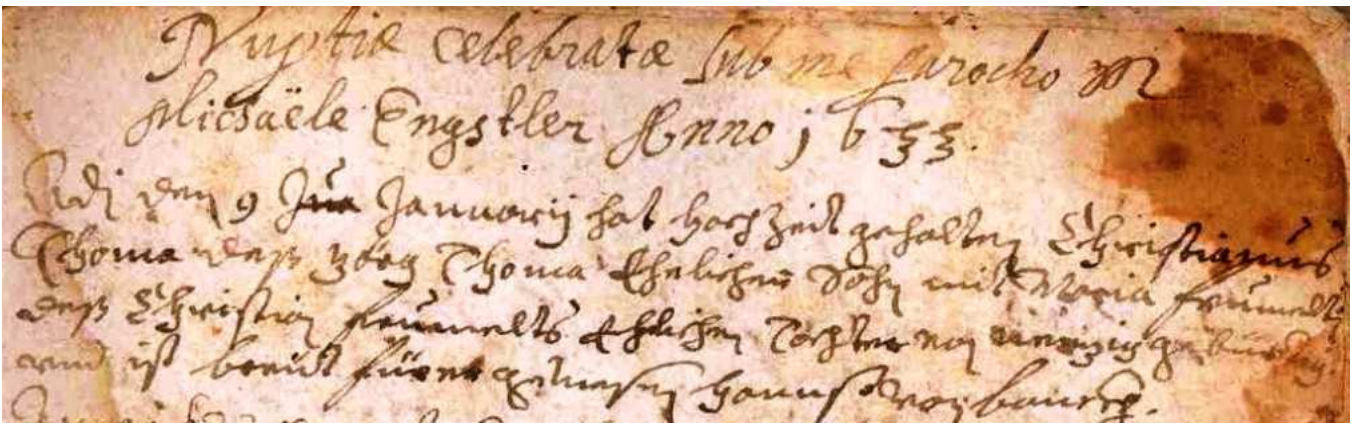 Nuptiæ celebratæ sub me parocho M
Michaële Engstler Anno 1633.
Adj den 9 Januarij hat hochzeit gehalten Christianus
Thoma deß Jörg Thoma Ehelicher Sohn mit Maria
deß Christian Ehlichen Tochter von gebürtig
und ist breüt füerer gewesen Hannß von